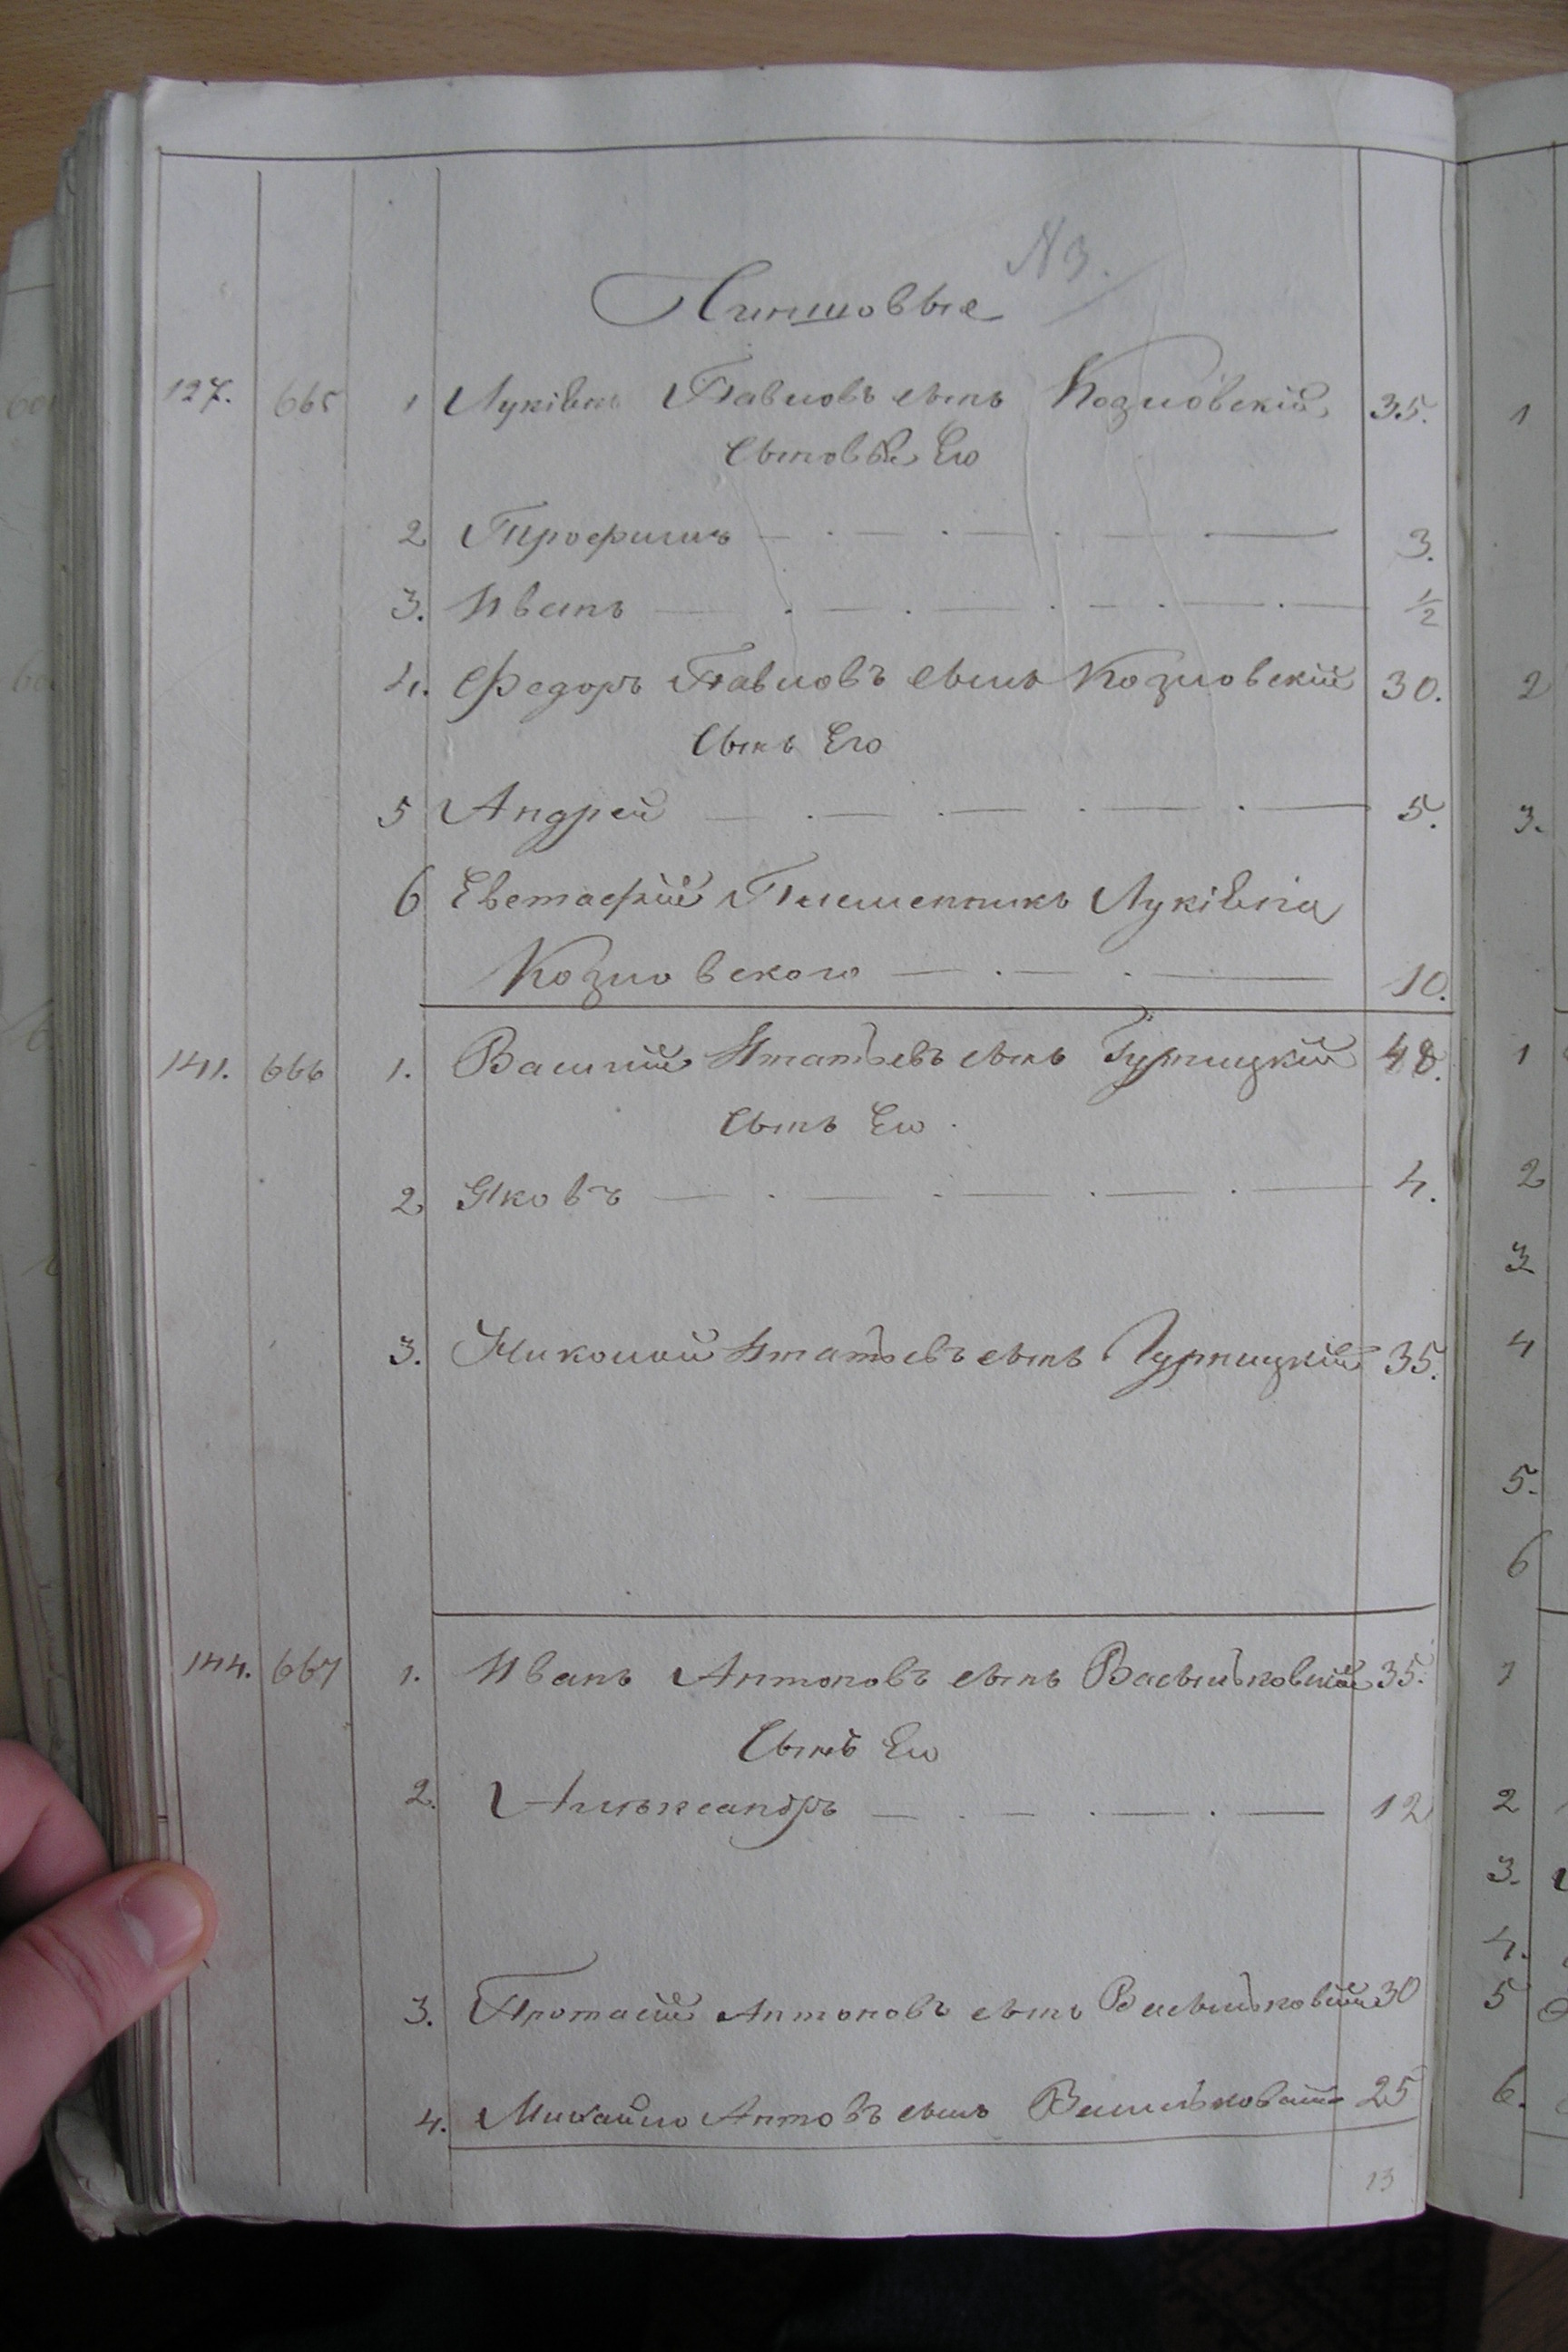 N 3.
Чиншовые
127. 665 1 Лукіянъ Павловъ сынъ Козловскій 35.
Сыновья Его
2 Трофимъ 3.
3. Иванъ 1/2
4. Федоръ Павловъ сынъ Козловскій 30.
Сынъ Его
5 Андрей 5.
6 Евстафій Племенникъ Лукіяна
Козловского 10.
141. 666 1. Василий Игнатьевъ сынъ Гурницкий 48.
Сынъ Его
2. Яковъ 4.
3. Николай Игнатьевъ сынъ Гурницкій 35.
144. 667 1. Иванъ Антоновъ сынъ 35.
Сынъ Его
2. Александръ 12
3. Протасий Антоновъ сынъ 30
4. Михайло сынъ 25
13
1
2
3.
1
2
3
4
5.
6
1
2
3.
4.
5
6.